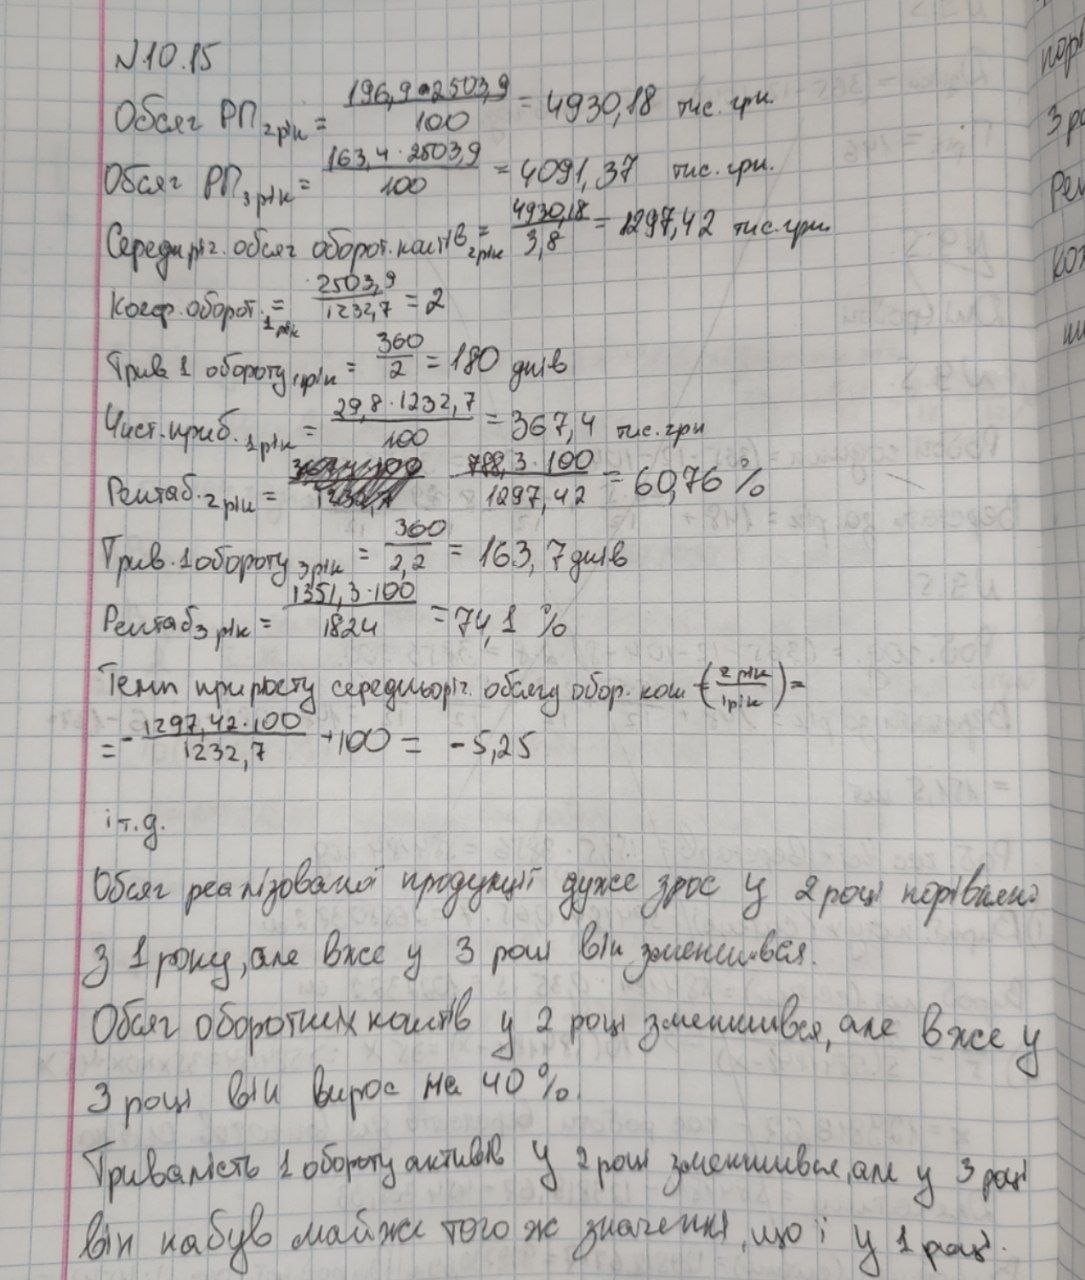 N10.15
Обсяг РП2рік = 196,9•2503,9 / 100 = 4930,18 тис. грн.
Обсяг РП3рік = 163,4·2503,9 / 100 = 4091,37 тис. грн.
Середнріч. обсяг оборот. коштів2рік = 4930,18 / 3,8 = 1297,42 тис.грн.
Коеф. оборот.1рік = 2503,9 / 1232,7 = 2
Трив 1 обороту1рік = 360 / 2 = 180 днів
Чист. приб.1рік = 29,8·1232,7 / 100 = 367,4 тис.грн
Рентаб.2рік = 788,3·100 / 1297,42 = 60,76 %
Трив. 1 обороту3рік = 360 / 2,2 = 163,7 днів
Рентаб3рік = 1351,3·100 / 1824 = 74,1 %
Темп приросту середньоріч. обсягу обор. кош (2рік / 1рік) =
= - 1297,42·100 / 1232,7 +100 = -5,25
і т.д.
Обсяг реалізованої продукції дуже зрос у 2 році порівняно
з 1 року, але вже у 3 році він зменшився.
Обсяг оборотних коштів у 2 році зменшився, але вже у
3 році він вирос на 40 %.
Тривалість 1 обороту активів у 2 році зменшився, але у 3 році
він набув майже того ж значення, що і у 1 році.